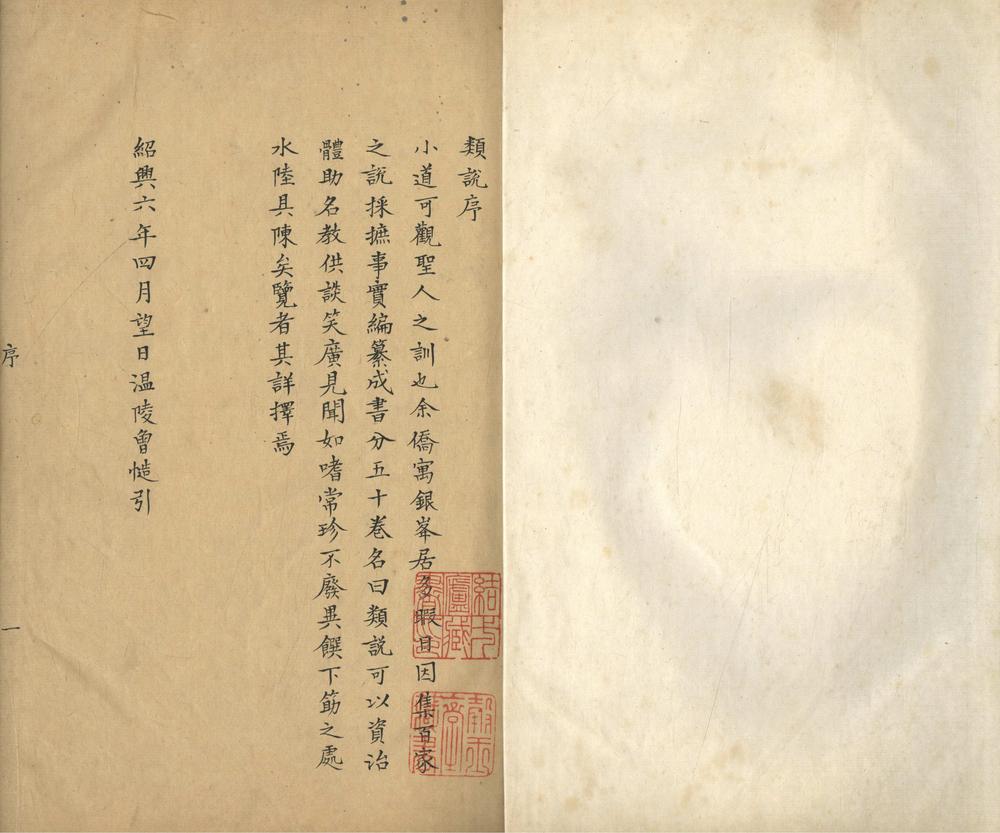 類說序
小道可觀聖人之訓也余僑寓銀峯居多暇日因集百家
之說採摭事實編纂成書分五十卷名曰類說可以資治
體助名教供談笑廣見聞如嗜常珍不廢異饌下筯之處
水陸具陳矣覽者其詳擇焉
紹興六年四月望日温陵曾慥引
序
一